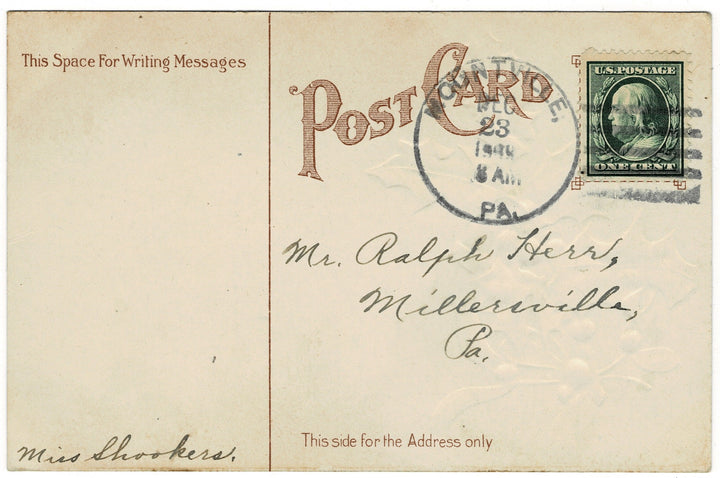 This Space For Writing Messages
POST CARD
U.S. POSTAGE
ONE CENT
MOUNTVILLE,
DEC
23
8 AM
PA.
Mr. Ralph Herr,
Millersville,
Pa.
This side for the Address only
Miss Shookers.